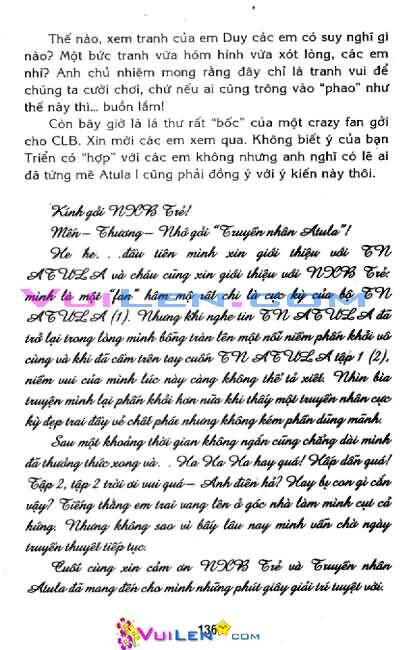 Thế nào, xem tranh của em Duy các em có suy nghĩ gì
nào? Một bức tranh vừa hóm hỉnh vừa xót lòng, các em
nhỉ? Anh chủ nhiệm mong rằng đây chỉ là tranh vui để
chúng ta cười chơi, chứ nếu ai cũng trông vào "phao" như
thế này thì... buồn lắm!
Còn bây giờ là lá thư rất "bốc" của một crazy fan gởi
cho CLB. Xin mời các em xem qua. Không biết ý của bạn
Triển có "hợp" với các em không nhưng anh nghĩ có lẽ ai
đã từng mê Atula I cũng phải đồng ý với ý kiến này thôi.
Kính gởi NXB Trẻ!
Mến - Thương - Nhớ gởi "Truyền nhân Atula"!
He he... đầu tiên mình xin giới thiệu với TN
ATULA và cháu cũng xin giới thiệu với NXB Trẻ:
mình là một "fan" hâm mộ rất chi là cực kỳ của bộ TN
ATULA (1). Nhưng khi nghe tin TN ATULA đã
trở lại trong lòng mình bỗng tràn lên một nỗi niềm phấn khởi vô
cùng và khi đã cầm trên tay cuốn TN ATULA tập 1 (2),
niềm vui của mình lúc này càng không thể tả xiết. Nhìn bìa
truyện mình lại phấn khởi hơn nữa khi thấy một truyền nhân cực
kỳ đẹp trai đầy vẻ chất phác nhưng không kém phần dũng mãnh.
Sau một khoảng thời gian không ngắn cũng chẳng dài mình
đã thưởng thức xong và. . Ha Ha Ha hay quá! Hấp dẫn quá!
Tập 2, tập 2 trời ơi vui quá - Anh điên hả? Hay bị con gì cắn
vậy? Tiếng thằng em trai vang lên ở góc nhà làm mình cụt cả
hứng. Nhưng không sao vì bấy lâu nay mình vẫn chờ ngày
truyền thuyết tiếp tục.
Cuối cùng xin cảm ơn NXB Trẻ và Truyền nhân
Atula đã mang đến cho mình những phút giây giải trí tuyệt vời.
136
VUILEN.COM
VUILEN.COM